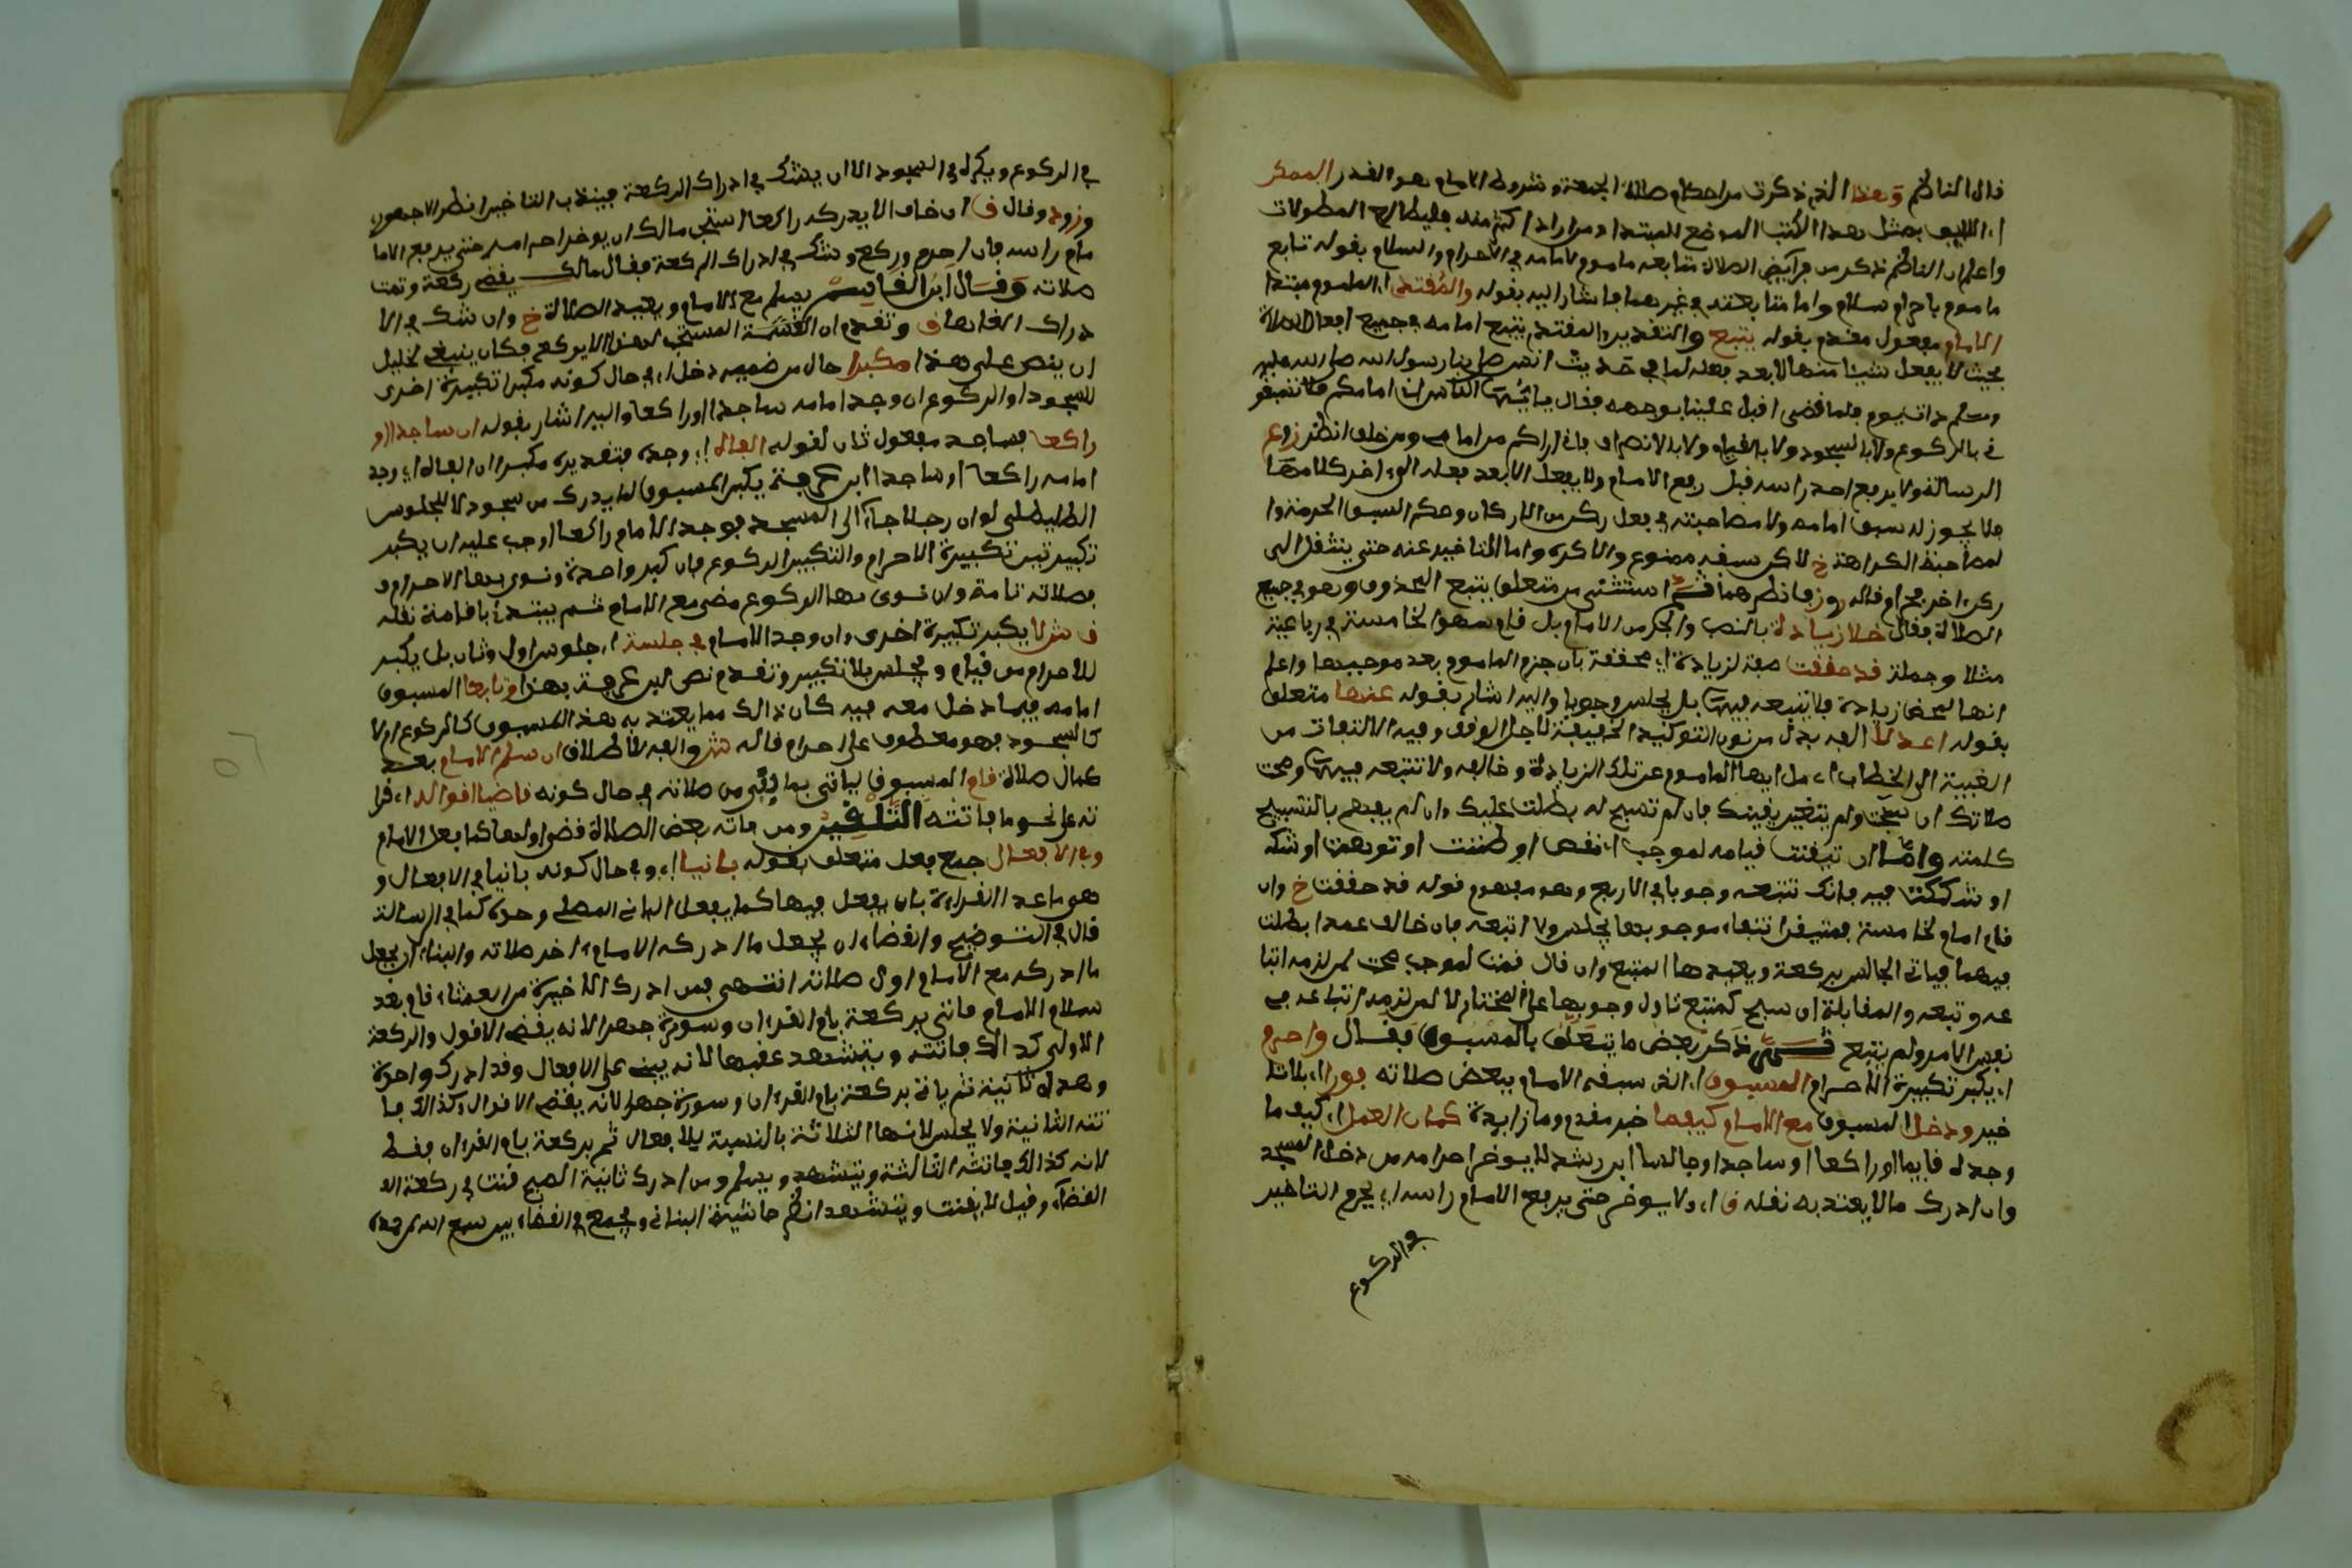 قال الناظم وهذا الذي ذكرت من احكام صلاة الجمعة وشروط الامام هو القدر الممكر
اللايق بمثل هذا الكتب الموضع للمبتدا ومن اراد اكثر منه فليطالع المطولات
واعلم ان الناظم ذكر من فرايض الصلاة متابعه ماموم لامامه في الاحرام والسلام بقوله تابع
ماموم باحرام سلام واما متابعته في غيرهما فاشار اليه بقوله والمقتدي اي الماموم مبتدا
الامام مفعول مقدم بقوله يتبع والتقدير والمقتدي يتبع امامه في جميع افعال الصلاة
بحيث لا يفعل شيئا منها الا بعد فعله لما في حديث انس صلى بنا رسول الله صلى الله عليه
وسلم ذات يوم فلما قضى اقبل علينا بوجهه فقال يا ايها الناس ان امامكم فلا تسبقو
ني بالركوع ولا بالسجود ولا بالقيام ولا بالانصراف فاني اراكم من امامي ومن خلفي انظر زوع
الرسالة ولا يرفع احد راسه قبل رفع الامام ولا يفعل الا بعد فعله الى اخر كلامها
فلا يجوز له سبق امامه ولا مصاحبته في فعل ركن من الاركان وحكم السبق الحرمة وا
لمصاحبة الكراهة خ لاكن سبقه ممنوع والا كره واما التاخير عنه حتى ينتقل الى
ركن اخر فحرام قاله روز فانظرهما ثم استثنى من متعلق يتبع المحذوف وهو في جميع
الصلاة فقال خلا زيادة بالنصب والجر من الامام بل قام سهوا لخامسة في رباعية
مثلا وجملة قد حققت صفة لزيادة اي محققة بان جزم الماموم بعدم موجبها واعلم
انها لمحض زيادة فلا يتبعه فيها بل يجلس وجوبا واليه اشار بقوله عنها متعلق
بقوله اعدلا الفه بدل من نون التوكيد الخفيفة لاجل الوقف وفيه الالتفات من
الغيبة الى الخطاب اي مل ايها الماموم عن تلك الزيادة وخالفه ولا تتبعه فيها وصحت
صلاتك ان سبحت ولم يتغير يقينك فان لم تسبح له بطلت عليك وان لم يفهم بالتسبيح
كلمته واما ان تيقنت قيامه لموجب اي نقص او ظننت او توهمت او شك
او شككت فيه فانك تتبعه وجوبا في الاربع وهو مفهوم قوله قد حققت خ وان
قام امام لخامسة فمتيقن انتفاء موجبها يجلس ولا اتبعه فان خالف عمدا بطلت
فيهما فياتي الجالس بركعة ويعيدها المتبع وان قال قمت لموجب صحت لمن لزمه اتبا
عه وتبعه والمقابلة ان سبح كمتبع تاول وجوبها على المختار لا لمن لزمه اتباعه في
نفس الامر ولم يتبع ثم ذكر بعض ما يتعلق بالمسبوق فقال واحرم
اي يكبر تكبيرة الاحرام المسبوق اي الذي سبقه الامام ببعض صلاته فورا اي بلا تا
خير ودخل المسبوق مع الامام كيفما خبر مقدم وما زايدة كان العمل اي كيف ما
وجده قايما او راكعا او ساجدا وجالسا ابن رشد لا يوخر احرامه من دخل المسجد
وان ادرك مالا يعتد به نقله ق اي ولا يوخر حتى يرفع الامام راسه اي يحرم التاخير
في الركوع
في الركوع ويكره في السجود الا ان يشك في ادراك الركعة فيندب التاخير انظر الاجهوري
وزوده وقال ق ان خاف الا يدركه راكعا استحب مالك ان يوخر احرامه حتى يرفع الاما
مام راسه فان احرم وركع وشك في ادراك الركعة فقال مالك يقضي ركعة وتمت
صلاته وقال ابن القاسم يسلم مع الامام ويعيد الصلاة خ وان شك في الا
دراك الغاها ق وتقدم ان القسمة المستحب لهذا الا يركع فكان ينبغي لخليل
ان ينص على هذا مكبرا حال من ضمير دخل اي في حال كونه مكبرا تكبيرة اخرى
للسجود او الركوع ان وجد امامه ساجدا او راكعا واليه اشار بقوله ان ساجدا او
راكعا فساجد مفعول ثان لقوله الفاه اي وجده فتقديره مكبرا ان الفاه اي وجد
امامه راكعا او ساجدا ابن عرفة يكبر المسبوق لما يدرك من سجود لا للجلوس
الطليطلي لو ان رجلا جاء الى المسجد فوجد الامام راكعا وجب عليه ان يكبر
تكبيرتين تكبيرة الاحرام والتكبير الركوع فان كبر واحدة ونوى بها الاحرام و
فصلاته تامة وان نوى بها الركوع مضى مع الامام ثم يبتدئ باقامة نقله
ق ش لا يكبر تكبيرة اخرى ان وجد الامام في جلسة اي جلوس اول وثان بل يكبر
للاحرام من قيام ويجلس بلا تكبير وتقدم نص ابن عرفة بهذا وتابعا المسبوق
امامه فيما دخل معه فيه كان ذالك مما يعتد به هذا المسبوق كالركوع اولا
كالسجود فهو معطوف على احرم قاله ش والفه للاطلاق ان سلم الامام بعد
كمال صلاة قام المسبوق لياتي بما بقي من صلاته في حال كونه قاضيا اقواله اي قرا
ته على نحو ما فاتته التلقين ومن فاته بعض الصلاة قضى اولها كما فعل الامام
وفي الافعال جمع فعل متعلق بقوله بانيا اي وفي حال كونه بانيا في الافعال و
هو ما عدا القراءة بان يفعل فيها كما يفعل الباني المصلي وحده كما في الرسالة
قال في التوضيح والقضاء ان يجعل ما ادركه الامام اخر صلاته والبناء ان يجعل
ما ادركه مع الامام اول صلاته انتهى فمن ادرك الاخيرة من العشاء قام بعد
سلام الامام فاتى بركعة بام القرءان وسورة جهرا لانه يقضي الاقول والركعة
الاولى كذالك فاتته ويتشهد عقبها لانه يبني على الافعال وقد ادرك واحدة
وهده ثانية ثم ياتي بركعة بام القرءان وسورة جهرا لانه يقضي الاقوال وكذالك فا
تته الثانية ولا يجلس لانها الثلاثة بالنسبة للافعال ثم بركعة بام القرءان فقط
لانه كذالك فاتته الثالثة ويتشهد ويسلم ومن ادرك ثانية الصبح قنت في ركعة الا
القضاء وقيل لا يقنت ويتشهد انظر حاشية البناني ويجمع في القضاء بين سمع الله لمن حمده